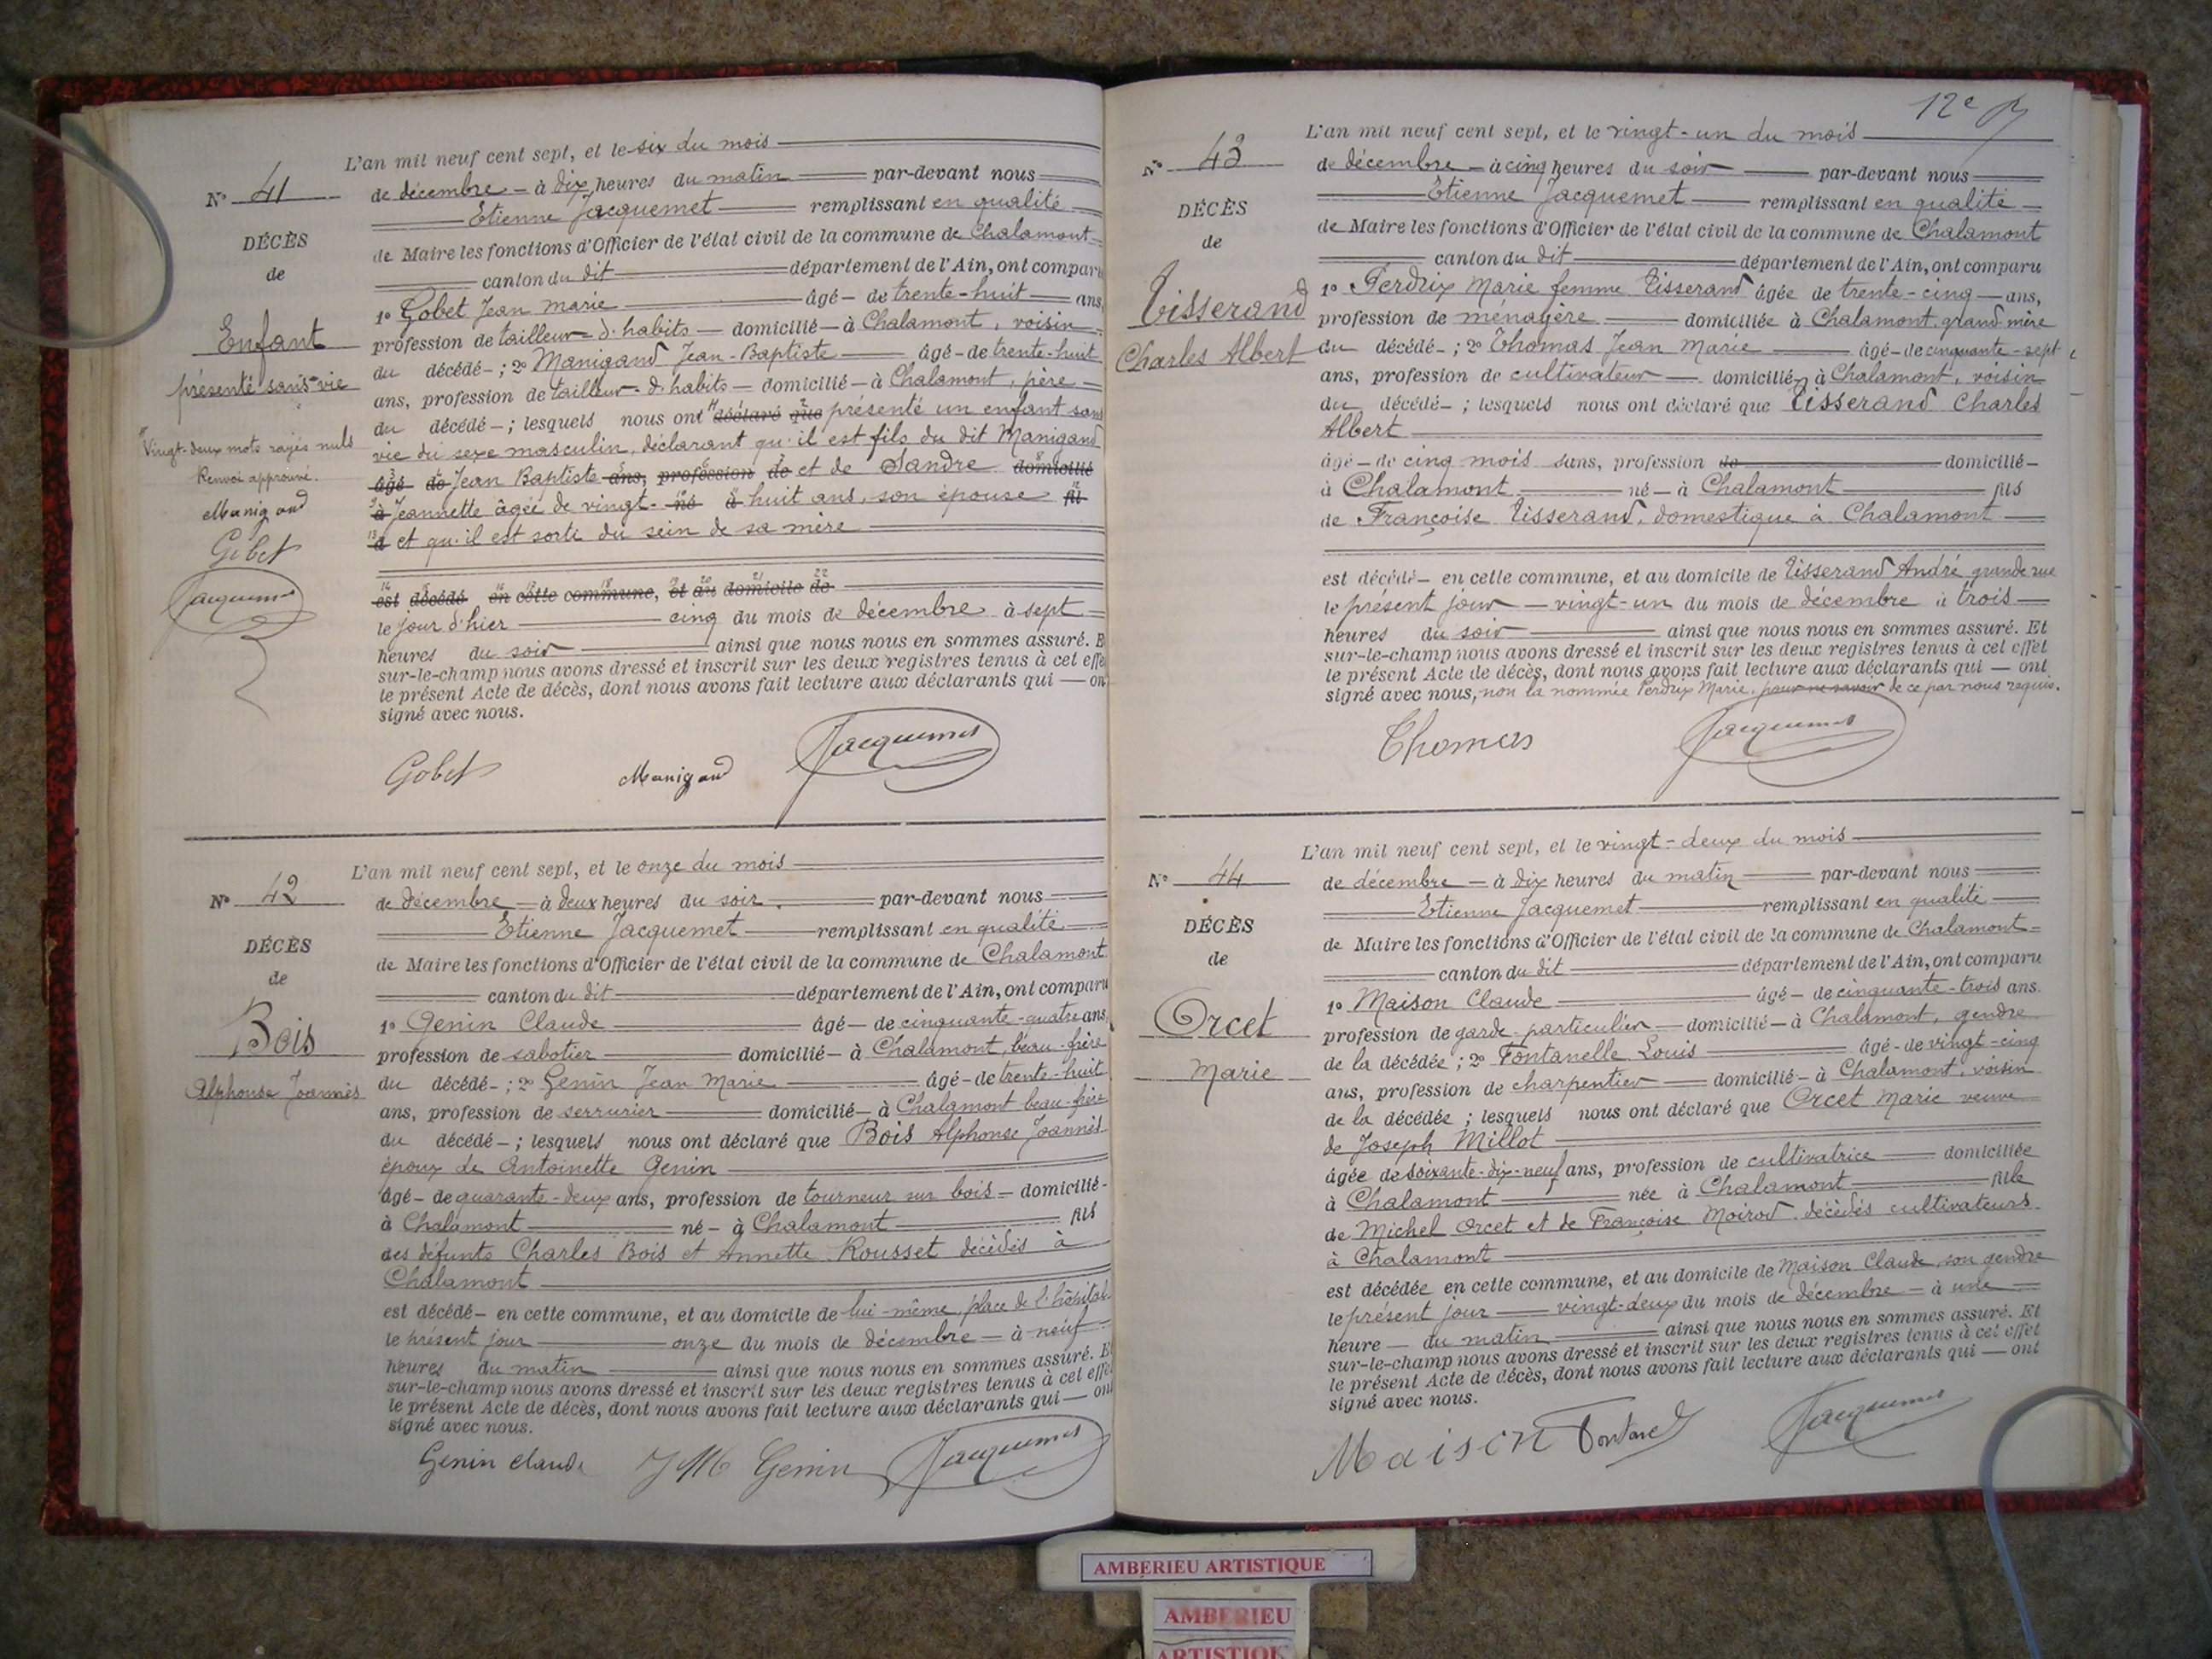 L'an mil neuf cent sept, et le six du mois
N° 41
de décembre - à dix heures du matin par-devant nous
Etienne Jacquemet remplissant en qualité
DÉCÈS
de Maire les fonctions d'Officier de l'état civil de la commune de Chalamont
de
canton du dit département de l'Ain, ont comparu
1° Gobet Jean Marie âgé - de trente-huit ans,
Enfant
profession de tailleur d'habits - domicilié - à Chalamont, voisin
présenté sans vie
du décédé - ; 2° Manigand Jean-Baptiste âgé - de trente-huit
ans, profession de tailleur d'habits - domicilié - à Chalamont, père
du décédé - ; lesquels nous ont déclaré que présenté un enfant sans
Vingt-deux mots rayés nuls
vie du sexe masculin, déclarant qu'il est fils du dit Manigand
Renvoi approuvé.
âgé de Jean Baptiste ans, profession de et de Sandre domicilié
Manigand
à Jeannette âgée de vingt- né à huit ans, son épouse fil
Gobet
d et qu'il est sorti du sein de sa mère
Jacquemet
est décédé en cette commune, et au domicile de
le jour d'hier cinq du mois de décembre à sept
heures du soir ainsi que nous nous en sommes assuré. E
sur-le-champ nous avons dressé et inscrit sur les deux registres tenus à cet effe
le présent Acte de décès, dont nous avons fait lecture aux déclarants qui - on
signé avec nous.
Gobet Manigand Jacquemet
L'an mil neuf cent sept, et le onze du mois
N° 42
de décembre - à deux heures du soir. par-devant nous
Etienne Jacquemet remplissant en qualité
DÉCÈS
de Maire les fonctions d'Officier de l'état civil de la commune de Chalamont
de
canton du dit département de l'Ain, ont comparu
Bois
1° Genin Claude âgé - de cinquante-quatre ans,
profession de sabotier domicilié - à Chalamont, beau-frère
Alphonse Joannès
du décédé - ; 2° Genin Jean Marie âgé - de trente-huit
ans, profession de serrurier domicilié - à Chalamont beau-frère
du décédé - ; lesquels nous ont déclaré que Bois Alphonse Joannès
époux de Antoinette Genin
âgé - de quarante-deux ans, profession de tourneur sur bois - domicilié -
à Chalamont né - à Chalamont fils
des défunts Charles Bois et Annette Rousset décédés à
Chalamont
est décédé - en cette commune, et au domicile de lui-même, place de l'hôpital
le présent jour onze du mois de décembre - à neuf
heures du matin ainsi que nous nous en sommes assuré. E
sur-le-champ nous avons dressé et inscrit sur les deux registres tenus à cet effe
le présent Acte de décès, dont nous avons fait lecture aux déclarants qui - ont
signé avec nous.
Genin Claude JM Genin Jacquemet
12e
L'an mil neuf cent sept, et le vingt-un du mois
N° 43
de décembre - à cinq heures du soir par-devant nous
Etienne Jacquemet remplissant en qualité
DÉCÈS
de Maire les fonctions d'Officier de l'état civil de la commune de Chalamont
de
canton du dit département de l'Ain, ont comparu
1° Perdrix Marie femme Tisserand âgée de trente-cinq ans,
Tisserand
profession de ménagère domiciliée à Chalamont, grand mère
Charles Albert
du décédé - ; 2° Thomas Jean Marie âgé - de cinquante-sept
ans, profession de cultivateur domicilié à Chalamont, voisin
du décédé - ; lesquels nous ont déclaré que Tisserand Charles
Albert
âgé - de cinq mois sans, profession de domicilié -
à Chalamont né - à Chalamont fils
de Françoise Tisserand, domestique à Chalamont
est décédé - en cette commune, et au domicile de Tisserand André grande rue
le présent jour - vingt-un du mois de décembre à trois
heures du soir ainsi que nous nous en sommes assuré. Et
sur-le-champ nous avons dressé et inscrit sur les deux registres tenus à cet effet
le présent Acte de décès, dont nous avons fait lecture aux déclarants qui - ont
signé avec nous, non la nommée Perdrix Marie, pour ne savoir de ce par nous requis.
Thomas Jacquemet
L'an mil neuf cent sept, et le vingt-deux du mois
N° 44
de décembre - à dix heures du matin par-devant nous
Etienne Jacquemet remplissant en qualité
DÉCÈS
de Maire les fonctions d'Officier de l'état civil de la commune de Chalamont
de
canton du dit département de l'Ain, ont comparu
1° Maison Claude âgé - de cinquante-trois ans.
Orcet
profession de garde-particulier - domicilié - à Chalamont, gendre
de la décédée ; 2° Fontanelle Louis âgé - de vingt-cinq
Marie
ans, profession de charpentier domicilié - à Chalamont, voisin
de la décédée ; lesquels nous ont déclaré que Orcet Marie veuve
de Joseph Millot
âgée de soixante-dix-neuf ans, profession de cultivatrice domiciliée
à Chalamont née à Chalamont fille
de Michel Orcet et de Françoise Moirod décédés cultivateurs
à Chalamont
est décédée en cette commune, et au domicile de Maison Claude son gendre
le présent jour vingt-deux du mois de décembre - à une
heure - du matin ainsi que nous nous en sommes assuré. Et
sur-le-champ nous avons dressé et inscrit sur les deux registres tenus à cet effet
le présent Acte de décès, dont nous avons fait lecture aux déclarants qui - ont
signé avec nous.
Maison Jacquemet
AMBERIEU ARTISTIQUE
AMBERIEU
ARTISTIQUE